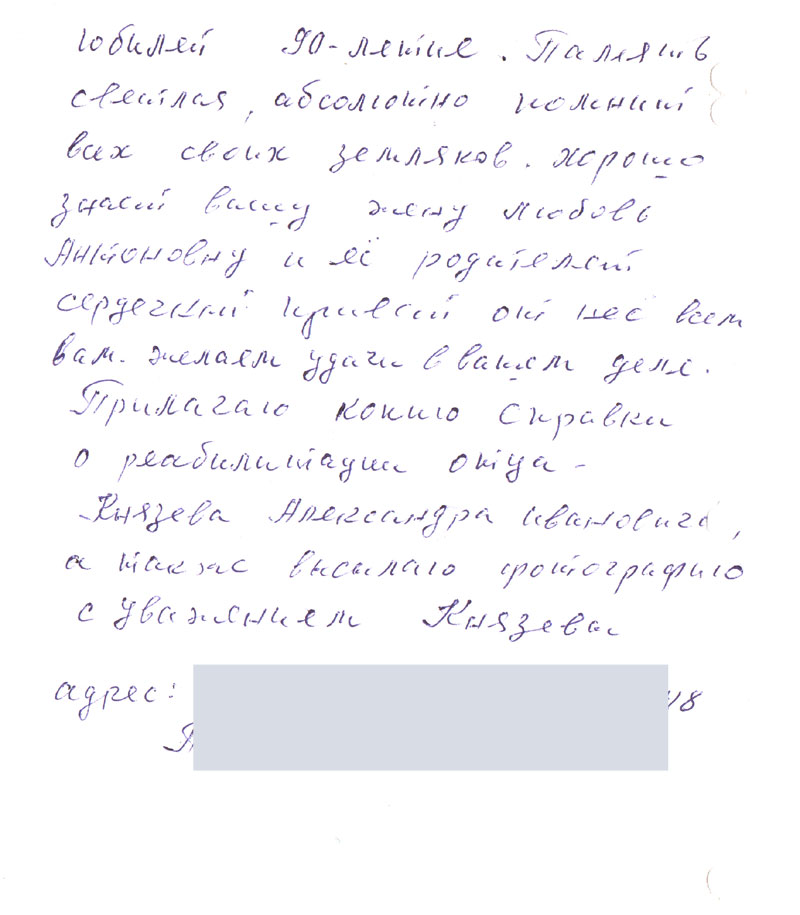 юбилей 90-летие. Память
светлая, абсолютно помнит
всех своих земляков. хорошо
знает вашу жену Любовь
Антоновну и её родителей
сердечный привет от неё всем
вам. желаем удачи в вашем деле.
Прилагаю копию справки
о реабилитации отца -
Князева Александра Ивановича,
а также высылаю фотографию
с уважением Князевы
адрес: